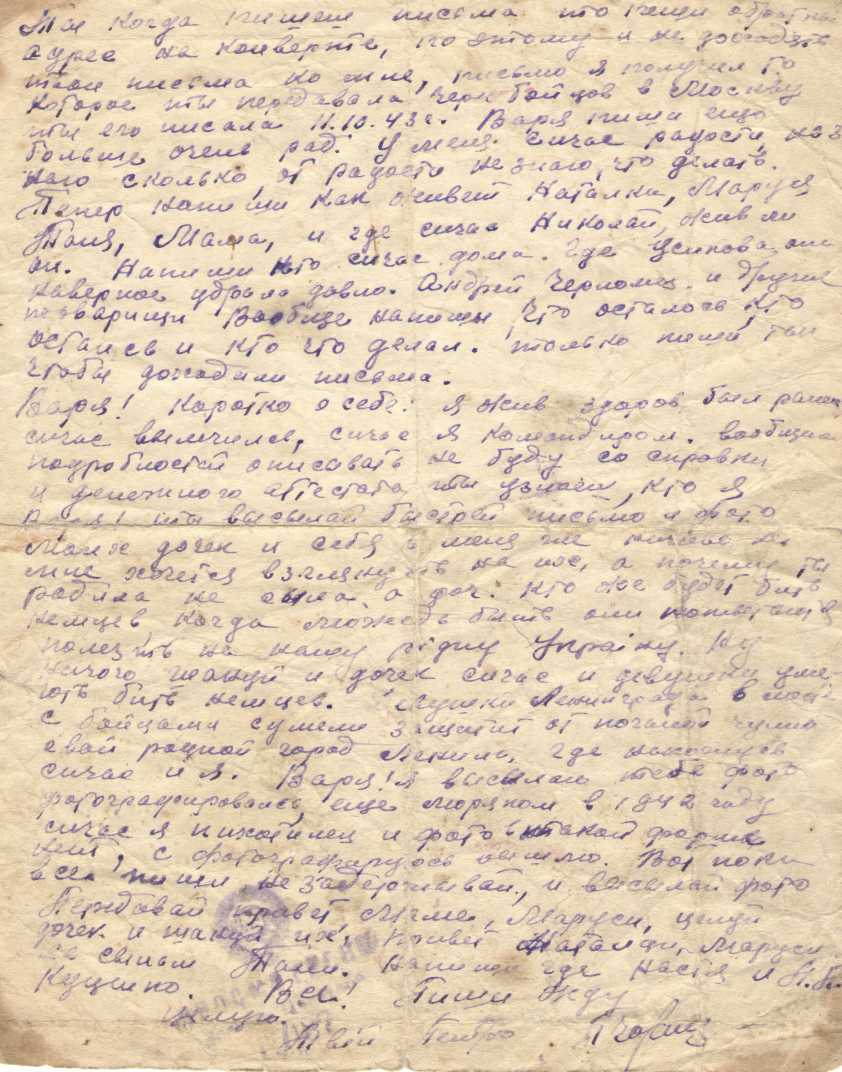 Ты когда пишеш письма то пеши обратный
адрес на конверте, по этому и не доходять
твои письма ко мне, письмо я получил то
которое ты передавала через бойцов в Москву
ты его писала 11.10.43г. Варя пиши ещо
больше очень рад. У меня сичас радости, не з
наю сколько, от радости не знаю, что делать.
Тепер напиши как живет Наталка, Маруся
Тоня, Мама, и где сичас Николай, жив ли
он. Напиши кто сичас дома. Где
наверное давно. Андрей Черномец и другие
товарищи Вообще напишы, что осталось, кто
остался и кто что делал. только пиши так
чтобы доходили письма.
Варя! Коротко о себе: я жив здоров, был ранен
сичас выличился, сичас я командиром. вообщем
подробностей описывать не буду со справки
и денежного аттестата ты узнаеш, кто я
ты высылай быстрей письмо и фото
Моих дочек и себя у меня
мне хочется взглянуть на их, а почему ты
радила не сына а доч. Кто же будет бить
немцев когда может быть они попытаются
полезть на нашу рідну Україну. Ну
ничого и дочек сичас и девушки уме-
ють бить немцев. Ленинграда в месте
с бойцами сумели защитит от поганой чумы
свой родной город Ленина, где нахожусь
сичас и я. Варя! я высылаю тебе фото
фотографировался еще моряком в 1942 году
сичас я пихотинец и фото в такой форме
нет, с фотографируюсь вышлю. Вот пока
всё пиши не задерживай, и высылай фото
Передавай привет Маме, Маруси, целуй
дочек и их, привет Наталки, Маруси
за сыном Тоней. Напиши где Настя и
Куценко. Всё! Пиши Жду
Целую.
Твой Петро